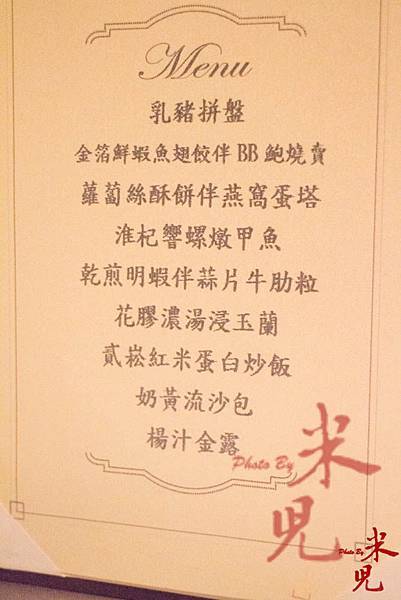 Menu
乳豬拼盤
金箔鮮蝦魚翅餃伴BB鮑燒賣
蘿蔔絲酥餅伴燕窩蛋塔
淮杞響螺燉甲魚
乾煎明蝦伴蒜片牛肋粒
花膠濃湯浸玉蘭
貳崧紅米蛋白炒飯
奶黃流沙包
楊汁金露
Photo By 米兒
Photo By 米兒